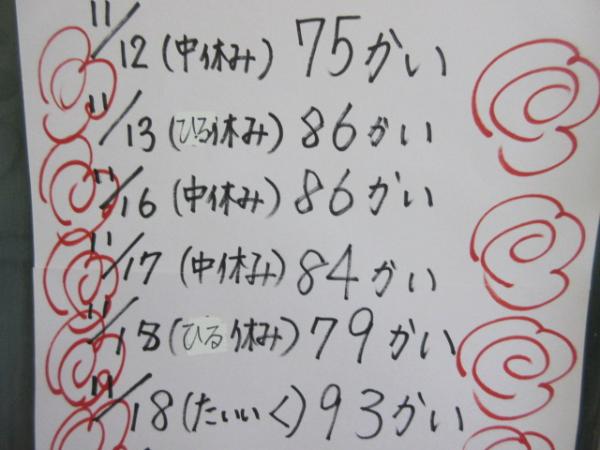 11/12 (中休み) 75かい
11/13 (ひる休み) 86かい
11/16 (中休み) 86かい
11/17 (中休み) 84かい
11/18 (ひる休み) 79かい
11/18 (たいいく) 93かい